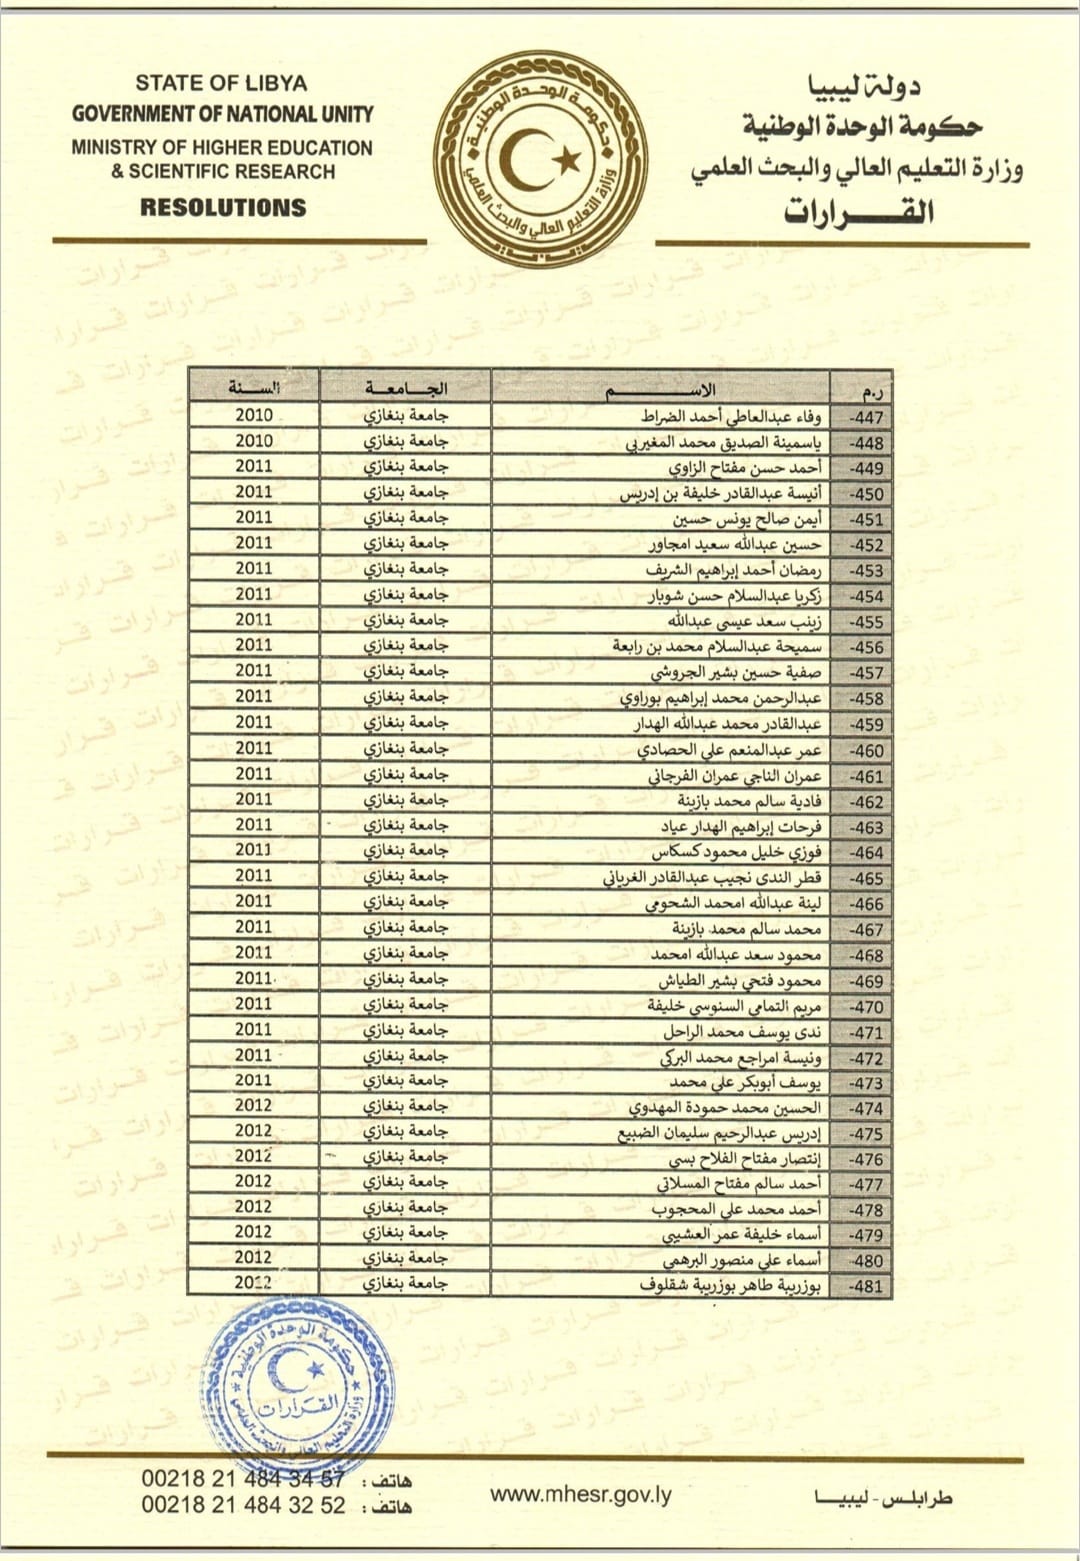 STATE OF LIBYA
GOVERNMENT OF NATIONAL UNITY
MINISTRY OF HIGHER EDUCATION
& SCIENTIFIC RESEARCH
RESOLUTIONS
دولة ليبيا
حكومة الوحدة الوطنية
وزارة التعليم العالي والبحث العلمي
القــــرارات
حكومة الوحدة الوطنية
وزارة التعليم العالي والبحث العلمي
ر.م الاســــــــم الجـامعـــة السـنة
447- وفاء عبدالعاطي أحمد الضراط جامعة بنغازي 2010
448- ياسمينة الصديق محمد المغيربي جامعة بنغازي 2010
449- أحمد حسن مفتاح الزاوي جامعة بنغازي 2011
450- أنيسة عبدالقادر خليفة بن إدريس جامعة بنغازي 2011
451- أيمن صالح يونس حسين جامعة بنغازي 2011
452- حسين عبدالله سعيد امجاور جامعة بنغازي 2011
453- رمضان أحمد إبراهيم الشريف جامعة بنغازي 2011
454- زكريا عبدالسلام حسن شوبار جامعة بنغازي 2011
455- زينب سعد عيسى عبدالله جامعة بنغازي 2011
456- سميحة عبدالسلام محمد بن رابعة جامعة بنغازي 2011
457- صفية حسين بشير الجروشي جامعة بنغازي 2011
458- عبدالرحمن محمد إبراهيم بوراوي جامعة بنغازي 2011
459- عبدالقادر محمد عبدالله الهدار جامعة بنغازي 2011
460- عمر عبدالمنعم علي الحصادي جامعة بنغازي 2011
461- عمران الناجي عمران الفرجاني جامعة بنغازي 2011
462- فادية سالم محمد بازينة جامعة بنغازي 2011
463- فرحات إبراهيم الهدار عياد جامعة بنغازي 2011
464- فوزي خليل محمود كسكاس جامعة بنغازي 2011
465- قطر الندى نجيب عبدالقادر الغرياني جامعة بنغازي 2011
466- لينة عبدالله امحمد الشحومي جامعة بنغازي 2011
467- محمد سالم محمد بازينة جامعة بنغازي 2011
468- محمود سعد عبدالله امحمد جامعة بنغازي 2011
469- محمود فتحي بشير الطياش جامعة بنغازي 2011
470- مريم التمامي السنوسي خليفة جامعة بنغازي 2011
471- ندى يوسف محمد الراحل جامعة بنغازي 2011
472- ونيسة امراجع محمد البركي جامعة بنغازي 2011
473- يوسف أبوبكر علي محمد جامعة بنغازي 2011
474- الحسين محمد حمودة المهدوي جامعة بنغازي 2012
475- إدريس عبدالرحيم سليمان الضبيع جامعة بنغازي 2012
476- إنتصار مفتاح الفلاح بسي جامعة بنغازي 2012
477- أحمد سالم مفتاح المسلاتي جامعة بنغازي 2012
478- أحمد محمد علي المحجوب جامعة بنغازي 2012
479- أسماء خليفة عمر العشيبي جامعة بنغازي 2012
480- أسماء علي منصور البرهمي جامعة بنغازي 2012
481- بوزريبة طاهر بوزريبة شقلوف جامعة بنغازي 2012
حكومة الوحدة الوطنية
القرارات
وزارة التعليم العالي والبحث العلمي
هاتف : 00218 21 484 34 57
هاتف : 00218 21 484 32 52
www.mhesr.gov.ly
طرابلس - ليبيـــا